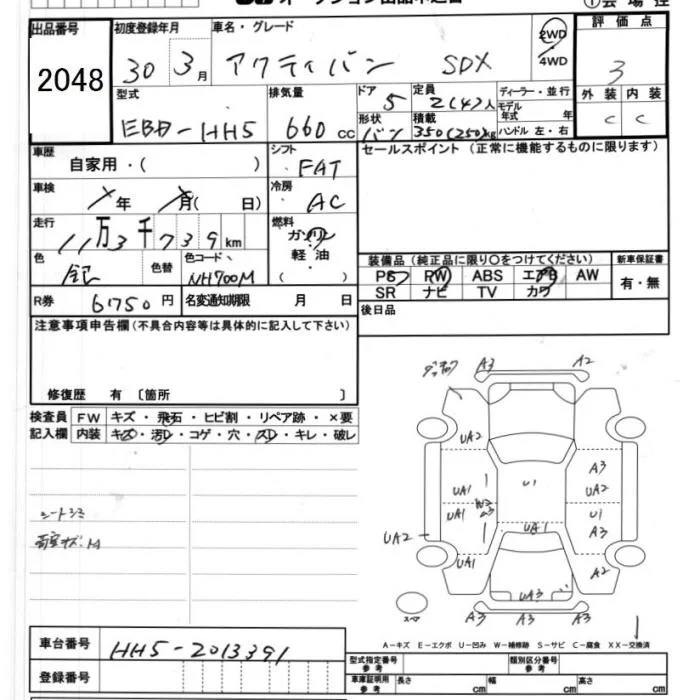 出品番号 初度登録年月 車名・グレード 2WD 4WD 評価点
2048 30年 3月 アクティバン SDX 3
型式 排気量 ドア 定員 ディーラー・並行 外装 内装
EBD-HH5 660cc 5 2(4)人 モデル年式 年 C C
形状 積載 ハンドル 左・右
バン 350(250)kg
車歴 シフト セールスポイント(正常に機能するものに限ります)
自家用・( ) FAT
車検 冷房
年 月( 日) AC
走行 燃料
11万3千739km ガソリン
軽油
色 色替 色コード ( ・ )
銀 NH700M
装備品(純正品に限り〇をつけてください) 新車保証書
PS RW ABS エアB AW 有・無
SR ナビ TV カワ
R券 6750円 名変通知期限 月 日 後日品
注意事項申告欄(不具合内容等は具体的に記入して下さい)
修復歴 有 〔箇所 〕
検査員 FW キズ・飛石・ヒビ割・リペア跡・×要
記入欄 内装 キズ・汚レ・コゲ・穴・スレ・キレ・破レ
シートシミ
A3 A2
UA2
A3
UA1 U1 UA2
UA1 A3 U1
UA2 UA1 A3
UA1 A2
UA3
A3 A3 A3
スペア
A-キズ E-エクボ U-凹み W-補修跡 S-サビ C-腐食 XX-交換済
車台番号 HH5-2013391
型式指定番号 参考 類別区分番号 参考
登録番号 車庫証明用 参考 長さ cm 幅 cm 高さ cm